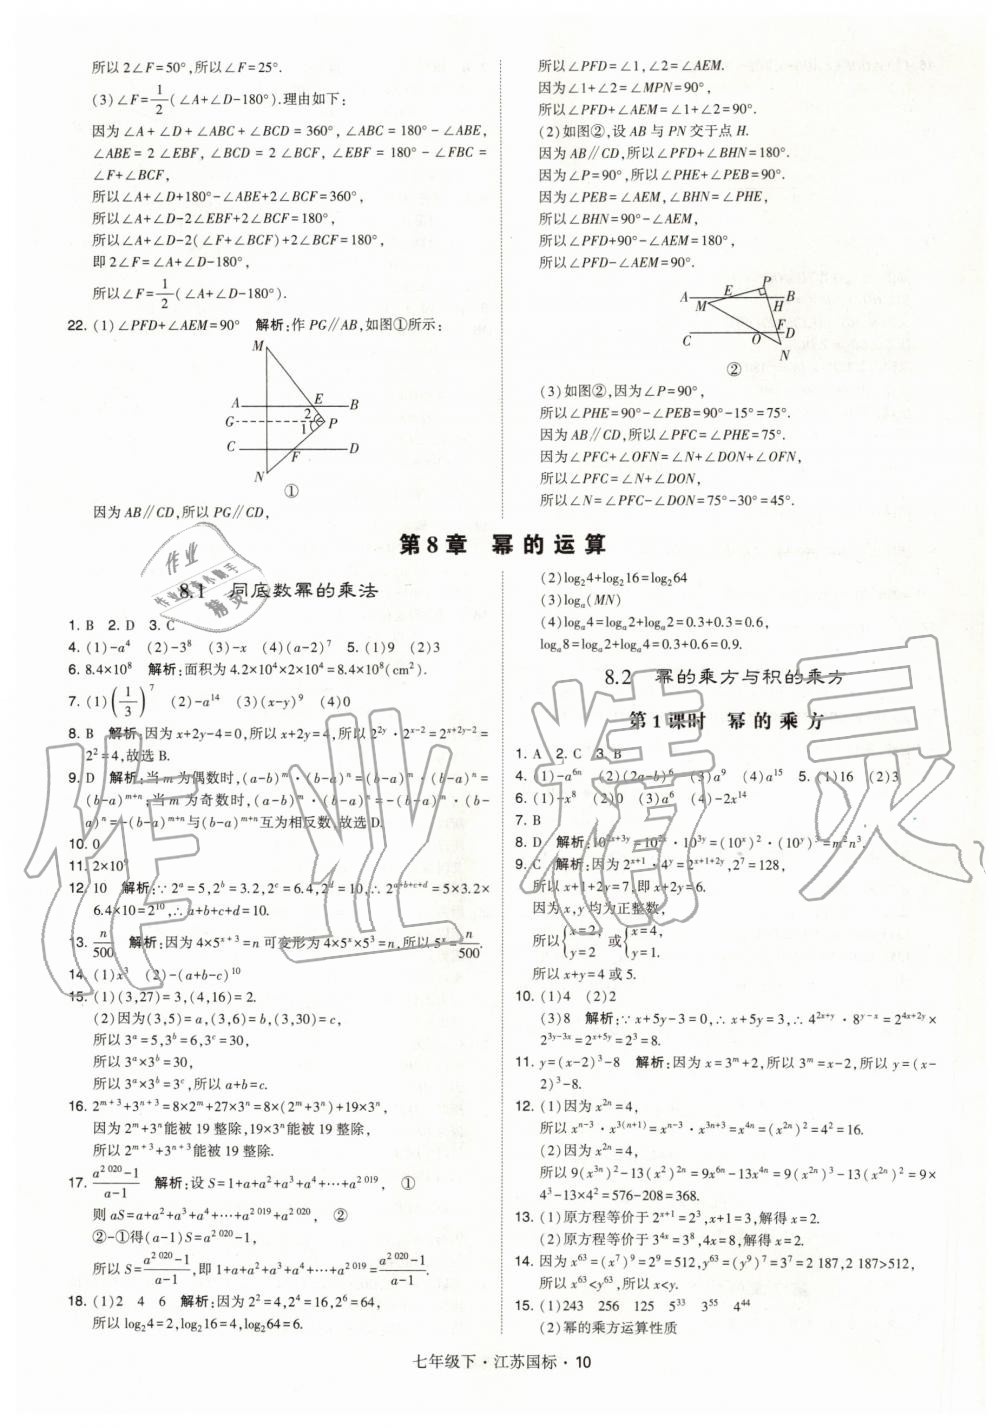 所以2∠F=50°,所以∠F=25°.
(3)∠F=1/2(∠A+∠D-180°).理由如下:
因为∠A+∠D+∠ABC+∠BCD=360°,∠ABC=180°-∠ABE,
∠ABE=2∠EBF,∠BCD=2∠BCF,∠EBF=180°-∠FBC=
∠F+∠BCF,
所以∠A+∠D+180°-∠ABE+2∠BCF=360°,
所以∠A+∠D-2∠EBF+2∠BCF=180°,
所以∠A+∠D-2(∠F+∠BCF)+2∠BCF=180°,
即2∠F=∠A+∠D-180°,
所以∠F=1/2(∠A+∠D-180°).
22. (1)∠PFD+∠AEM=90° 解析:作PG∥AB,如图①所示:
M
A E B
G 2 1 P
C F D
N
①
因为AB∥CD,所以PG∥CD,
所以∠PFD=∠1,∠2=∠AEM.
因为∠1+∠2=∠MPN=90°,
所以∠PFD+∠AEM=∠1+∠2=90°.
(2)如图②,设AB与PN交于点H.
因为AB∥CD,所以∠PFD+∠BHN=180°.
因为∠P=90°,所以∠PHE+∠PEB=90°.
因为∠PEB=∠AEM,∠BHN=∠PHE,
所以∠BHN=90°-∠AEM,
所以∠PFD+90°-∠AEM=180°,
所以∠PFD-∠AEM=90°.
P
A E B
M H
F
C O D
N
②
(3)如图②,因为∠P=90°,
所以∠PHE=90°-∠PEB=90°-15°=75°.
因为AB∥CD,所以∠PFC=∠PHE=75°.
因为∠PFC+∠OFN=∠N+∠DON+∠OFN,
所以∠PFC=∠N+∠DON,
所以∠N=∠PFC-∠DON=75°-30°=45°.
第8章 幂的运算
8.1 同底数幂的乘法
1. B 2. D 3. C
4. (1)-a⁴ (2)-3⁸ (3)-x (4)(a-2)⁷ 5. (1)9 (2)3
6. 8.4×10⁸ 解析:面积为4.2×10⁴×2×10⁴=8.4×10⁸(cm²).
7. (1)(1/3)⁷ (2)-a¹⁴ (3)(x-y)⁹ (4)0
8. B 解析:因为x+2y-4=0,所以x+2y=4,所以2^(2y)·2^(x-2)=2^(x+2y-2)=
2²=4,故选B.
9. D 解析:当m为偶数时,(a-b)^m·(b-a)^n=(b-a)^m·(b-a)^n=
(b-a)^(m+n);当m为奇数时,(a-b)^m·(b-a)^n=-(b-a)^m·(b-
a)^n=-(b-a)^(m+n)与(b-a)^(m+n)互为相反数.故选D.
10. 0
11. 2×10⁹
12. 10 解析:∵2^a=5,2^b=3.2,2^c=6.4,2^d=10,∴2^(a+b+c+d)=5×3.2×
6.4×10=2¹⁰,∴a+b+c+d=10.
13. n/500 解析:因为4×5^(x+3)=n可变形为4×5^x×5³=n,所以5^x=n/500.
14. (1)x³ (2)-(a+b-c)¹⁰
15. (1)(3,27)=3,(4,16)=2.
(2)因为(3,5)=a,(3,6)=b,(3,30)=c,
所以3^a=5,3^b=6,3^c=30,
所以3^a×3^b=30,
所以3^a×3^b=3^c,所以a+b=c.
16. 2^(m+3)+3^(n+3)=8×2^m+27×3^n=8×(2^m+3^n)+19×3^n,
因为2^m+3^n能被19整除,19×3^n能被19整除,
所以2^(m+3)+3^(n+3)能被19整除.
17. (a^(2 020)-1)/(a-1) 解析:设S=1+a+a²+a³+a⁴+⋯+a^(2 019), ①
则aS=a+a²+a³+a⁴+⋯+a^(2 019)+a^(2 020), ②
②-①得(a-1)S=a^(2 020)-1,
所以S=(a^(2 020)-1)/(a-1),即1+a+a²+a³+a⁴+⋯+a^(2 019)=(a^(2 020)-1)/(a-1).
18. (1)2 4 6 解析:因为2²=4,2⁴=16,2⁶=64,
所以log₂4=2,log₂16=4,log₂64=6.
(2)log₂4+log₂16=log₂64
(3)logₐ(MN)
(4)logₐ4=logₐ2+logₐ2=0.3+0.3=0.6,
logₐ8=logₐ2+logₐ4=0.3+0.6=0.9.
8.2 幂的乘方与积的乘方
第1课时 幂的乘方
1. A 2. C 3. B
4. (1)-a^(6n) (2)(2a-b)⁶ (3)a⁹ (4)a¹⁵ 5. (1)16 (2)3
6. (1)-x⁸ (2)0 (3)a⁶ (4)-2x¹⁴
7. B
8. D 解析:10^(2x+3y)=10^(2x)·10^(3y)=(10^x)²·(10^y)³=m²n³.
9. C 解析:因为2^(x+1)·4^y=2^(x+1+2y),2⁷=128,
所以x+1+2y=7,即x+2y=6.
因为x,y均为正整数,
所以{x=2, y=2 或{x=4, y=1.
所以x+y=4或5.
10. (1)4 (2)2
(3)8 解析:∵x+5y-3=0,∴x+5y=3,∴4^(2x+y)·8^(y-x)=2^(4x+2y)×
2^(3y-3x)=2^(x+5y)=2³=8.
11. y=(x-2)³-8 解析:因为x=3^m+2,所以3^m=x-2,所以y=(x-
2)³-8.
12. (1)因为x^(2n)=4,
所以x^(n-3)·x^(3(n+1))=x^(n-3)·x^(3n+3)=x^(4n)=(x^(2n))²=4²=16.
(2)因为x^(2n)=4,
所以9(x^(3n))²-13(x²)^(2n)=9x^(6n)-13x^(4n)=9(x^(2n))³-13(x^(2n))²=9×
4³-13×4²=576-208=368.
13. (1)原方程等价于2^(x+1)=2³,x+1=3,解得x=2.
(2)原方程等价于3^(4x)=3⁸,4x=8,解得x=2.
14. 因为x⁶³=(x⁷)⁹=2⁹=512,y⁶³=(y⁹)⁷=3⁷=2 187,2 187>512,
所以x⁶³<y⁶³,所以x<y.
15. (1)243 256 125 5³³ 3⁵⁵ 4⁴⁴
(2)幂的乘方运算性质
七年级下·江苏国标·10
作业精灵